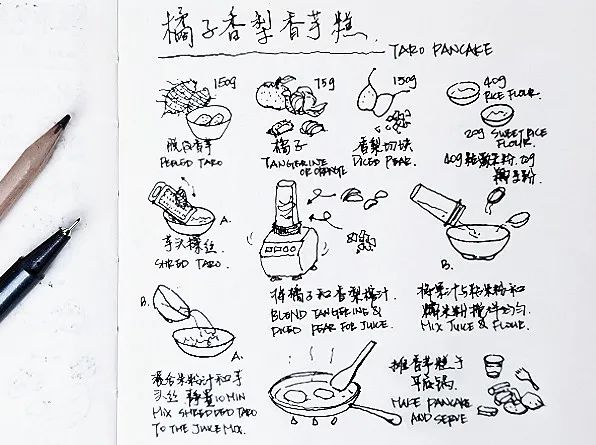 橘子香梨香芋糕.
TARO PANCAKE
150g
75g
150g
40g
RICE FLOUR.
20g SWEET RICE
FLOUR.
脱皮香芋
PEELED TARO
橘子
TANGERINE
OR ORANGE
香梨切块
DICED PEAR.
40g粘米粉. 20g
糯米粉.
A.
芋头擦丝
SHRED TARO.
将橘子和香梨榨汁.
BLEND TANGERINE &
DICED PEAR FOR JUICE.
B.
将果汁与粘米粉和
糯米粉搅拌均匀
MIX JUICE & FLOUR.
B.
A.
混合米粉汁和芋
头丝 静置10MIN
MIX SHREDDED TARO
TO THE JUICE MIX.
摊香芋糕于
平底锅.
MAKE PANCAKE
AND SERVE